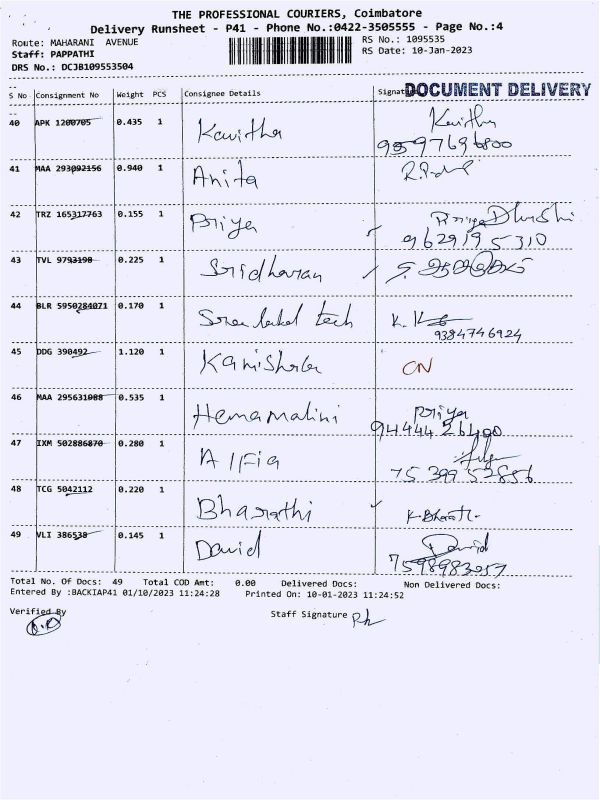 THE PROFESSIONAL COURIERS, Coimbatore
Delivery Runsheet - P41 - Phone No.:0422-3505555 - Page No.:4
Route: MAHARANI AVENUE
RS No.: 1095535
Staff: PAPPATHI
RS Date: 10-Jan-2023
DRS No.: DCJB109553504
DOCUMENT DELIVERY
S No Consignment No Weight PCS Consignee Details
40 APK 1200705 0.435 1 Kavitha Kavitha
9597696800
41 MAA 293092156 0.940 1 Anita
42 TRZ 165317763 0.155 1 Priya
9629195310
43 TVL 9793190 0.225 1 Sridharan
44 BLR 5950284071 0.170 1 tech
9384746924
45 DDG 390492 1.120 1 CN
46 MAA 295631088 0.535 1 Hemamalini Priya
94444 26400
47 IXM 502886870 0.280 1 Alfia
75 399 57856
48 TCG 5042112 0.220 1 Bharathi
49 VLI 386538 0.145 1 David David
7598983057
Total No. Of Docs: 49 Total COD Amt: 0.00 Delivered Docs: Non Delivered Docs:
Entered By :BACKIAP41 01/10/2023 11:24:28 Printed On: 10-01-2023 11:24:52
Verified By
Staff Signature